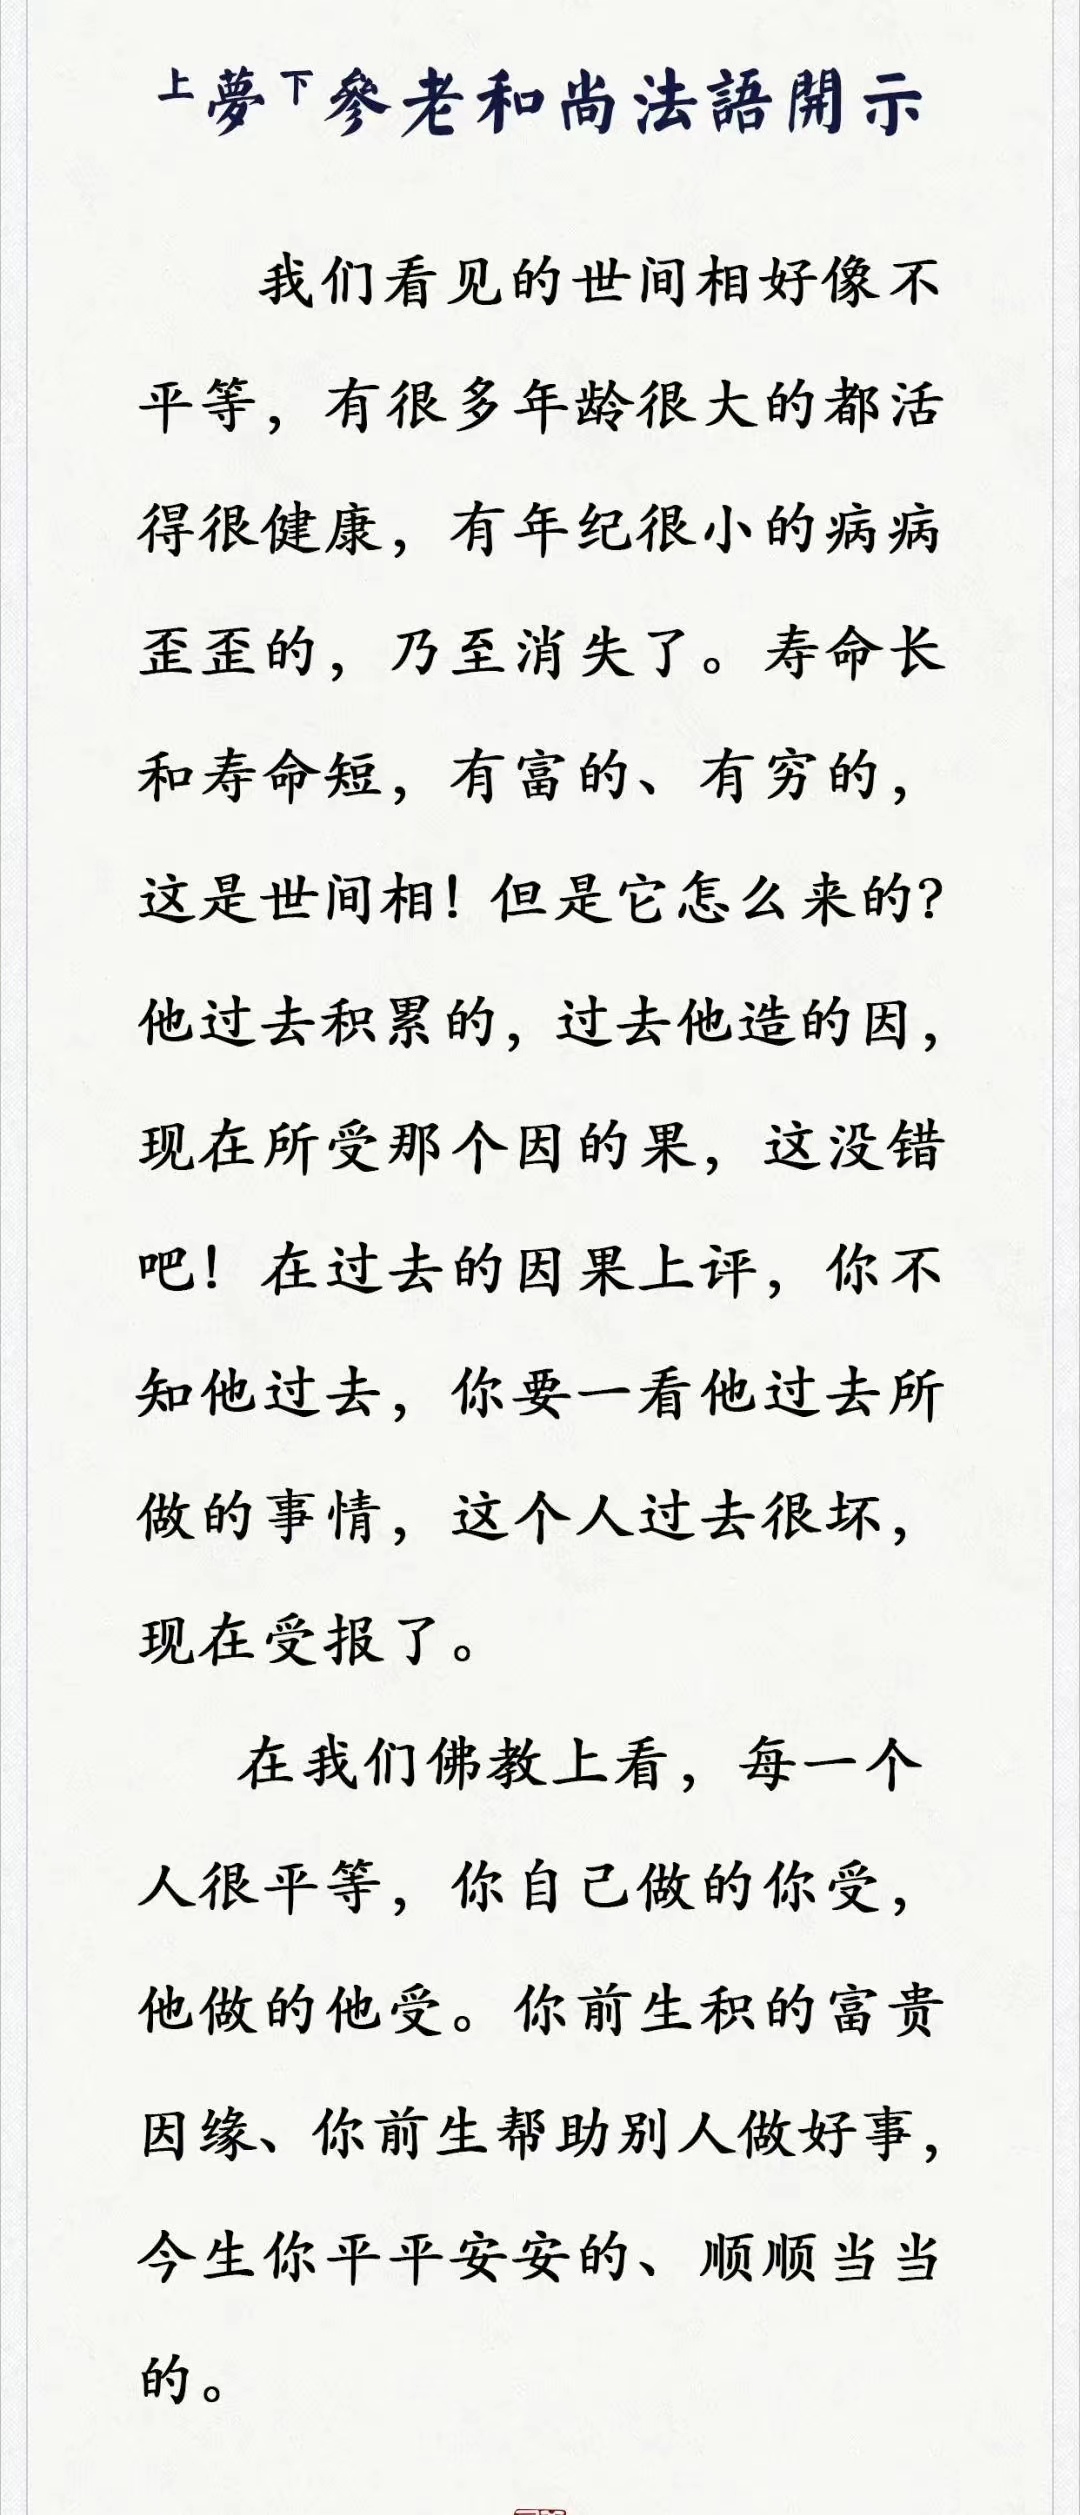 上夢下參老和尚法語開示
我们看见的世间相好像不
平等，有很多年龄很大的都活
得很健康，有年纪很小的病病
歪歪的，乃至消失了。寿命长
和寿命短，有富的、有穷的，
这是世间相！但是它怎么来的？
他过去积累的，过去他造的因，
现在所受那个因的果，这没错
吧！在过去的因果上评，你不
知他过去，你要一看他过去所
做的事情，这个人过去很坏，
现在受报了。
在我们佛教上看，每一个
人很平等，你自己做的你受，
他做的他受。你前生积的富贵
因缘、你前生帮助别人做好事，
今生你平平安安的、顺顺当当
的。